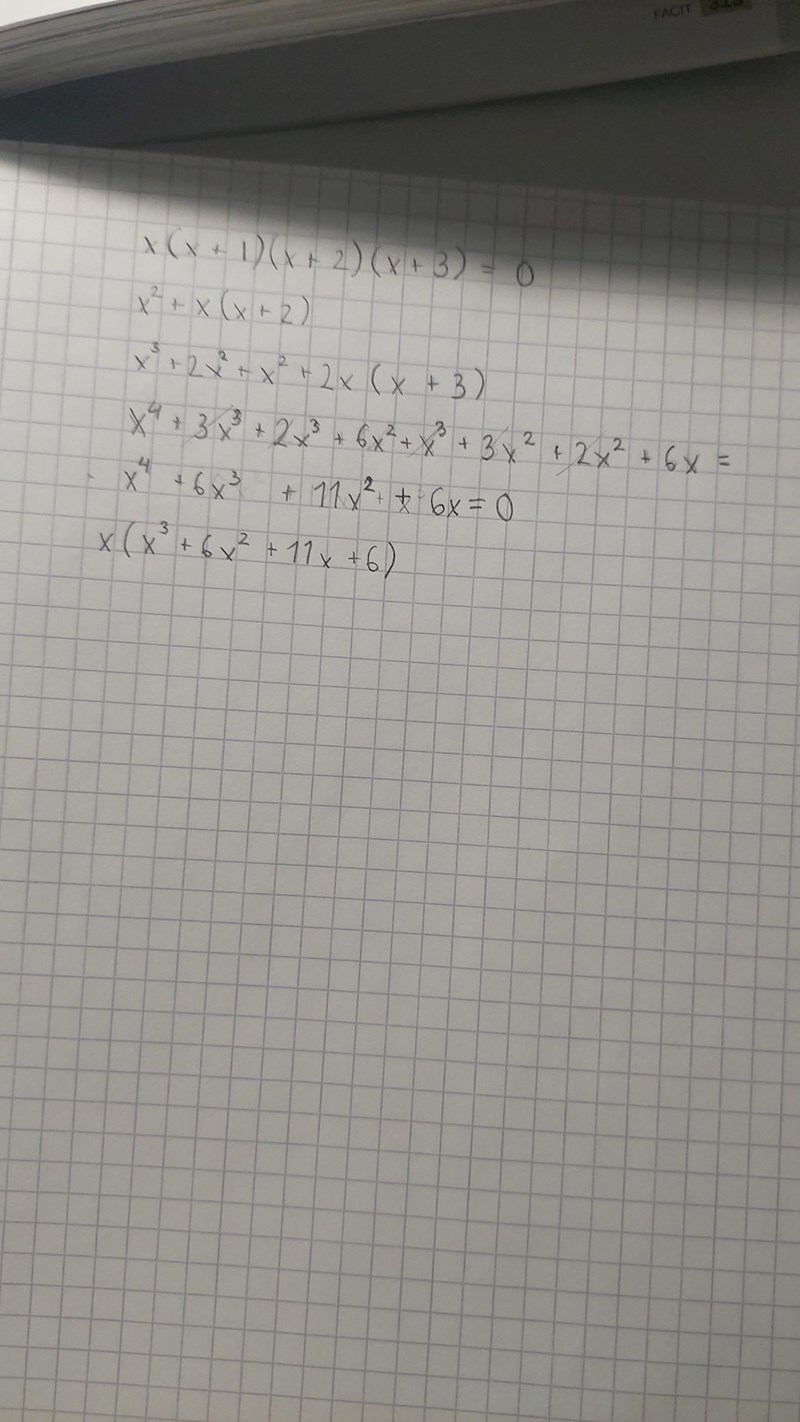 FACIT 313
x(x+1)(x+2)(x+3) = 0
x² + x(x+2)
x³ + 2x² + x² + 2x (x + 3)
x⁴ + 3x³ + 2x³ + 6x² + x³ + 3x² + 2x² + 6x =
x⁴ + 6x³ + 11x² + 6x = 0
x(x³ + 6x² + 11x + 6)